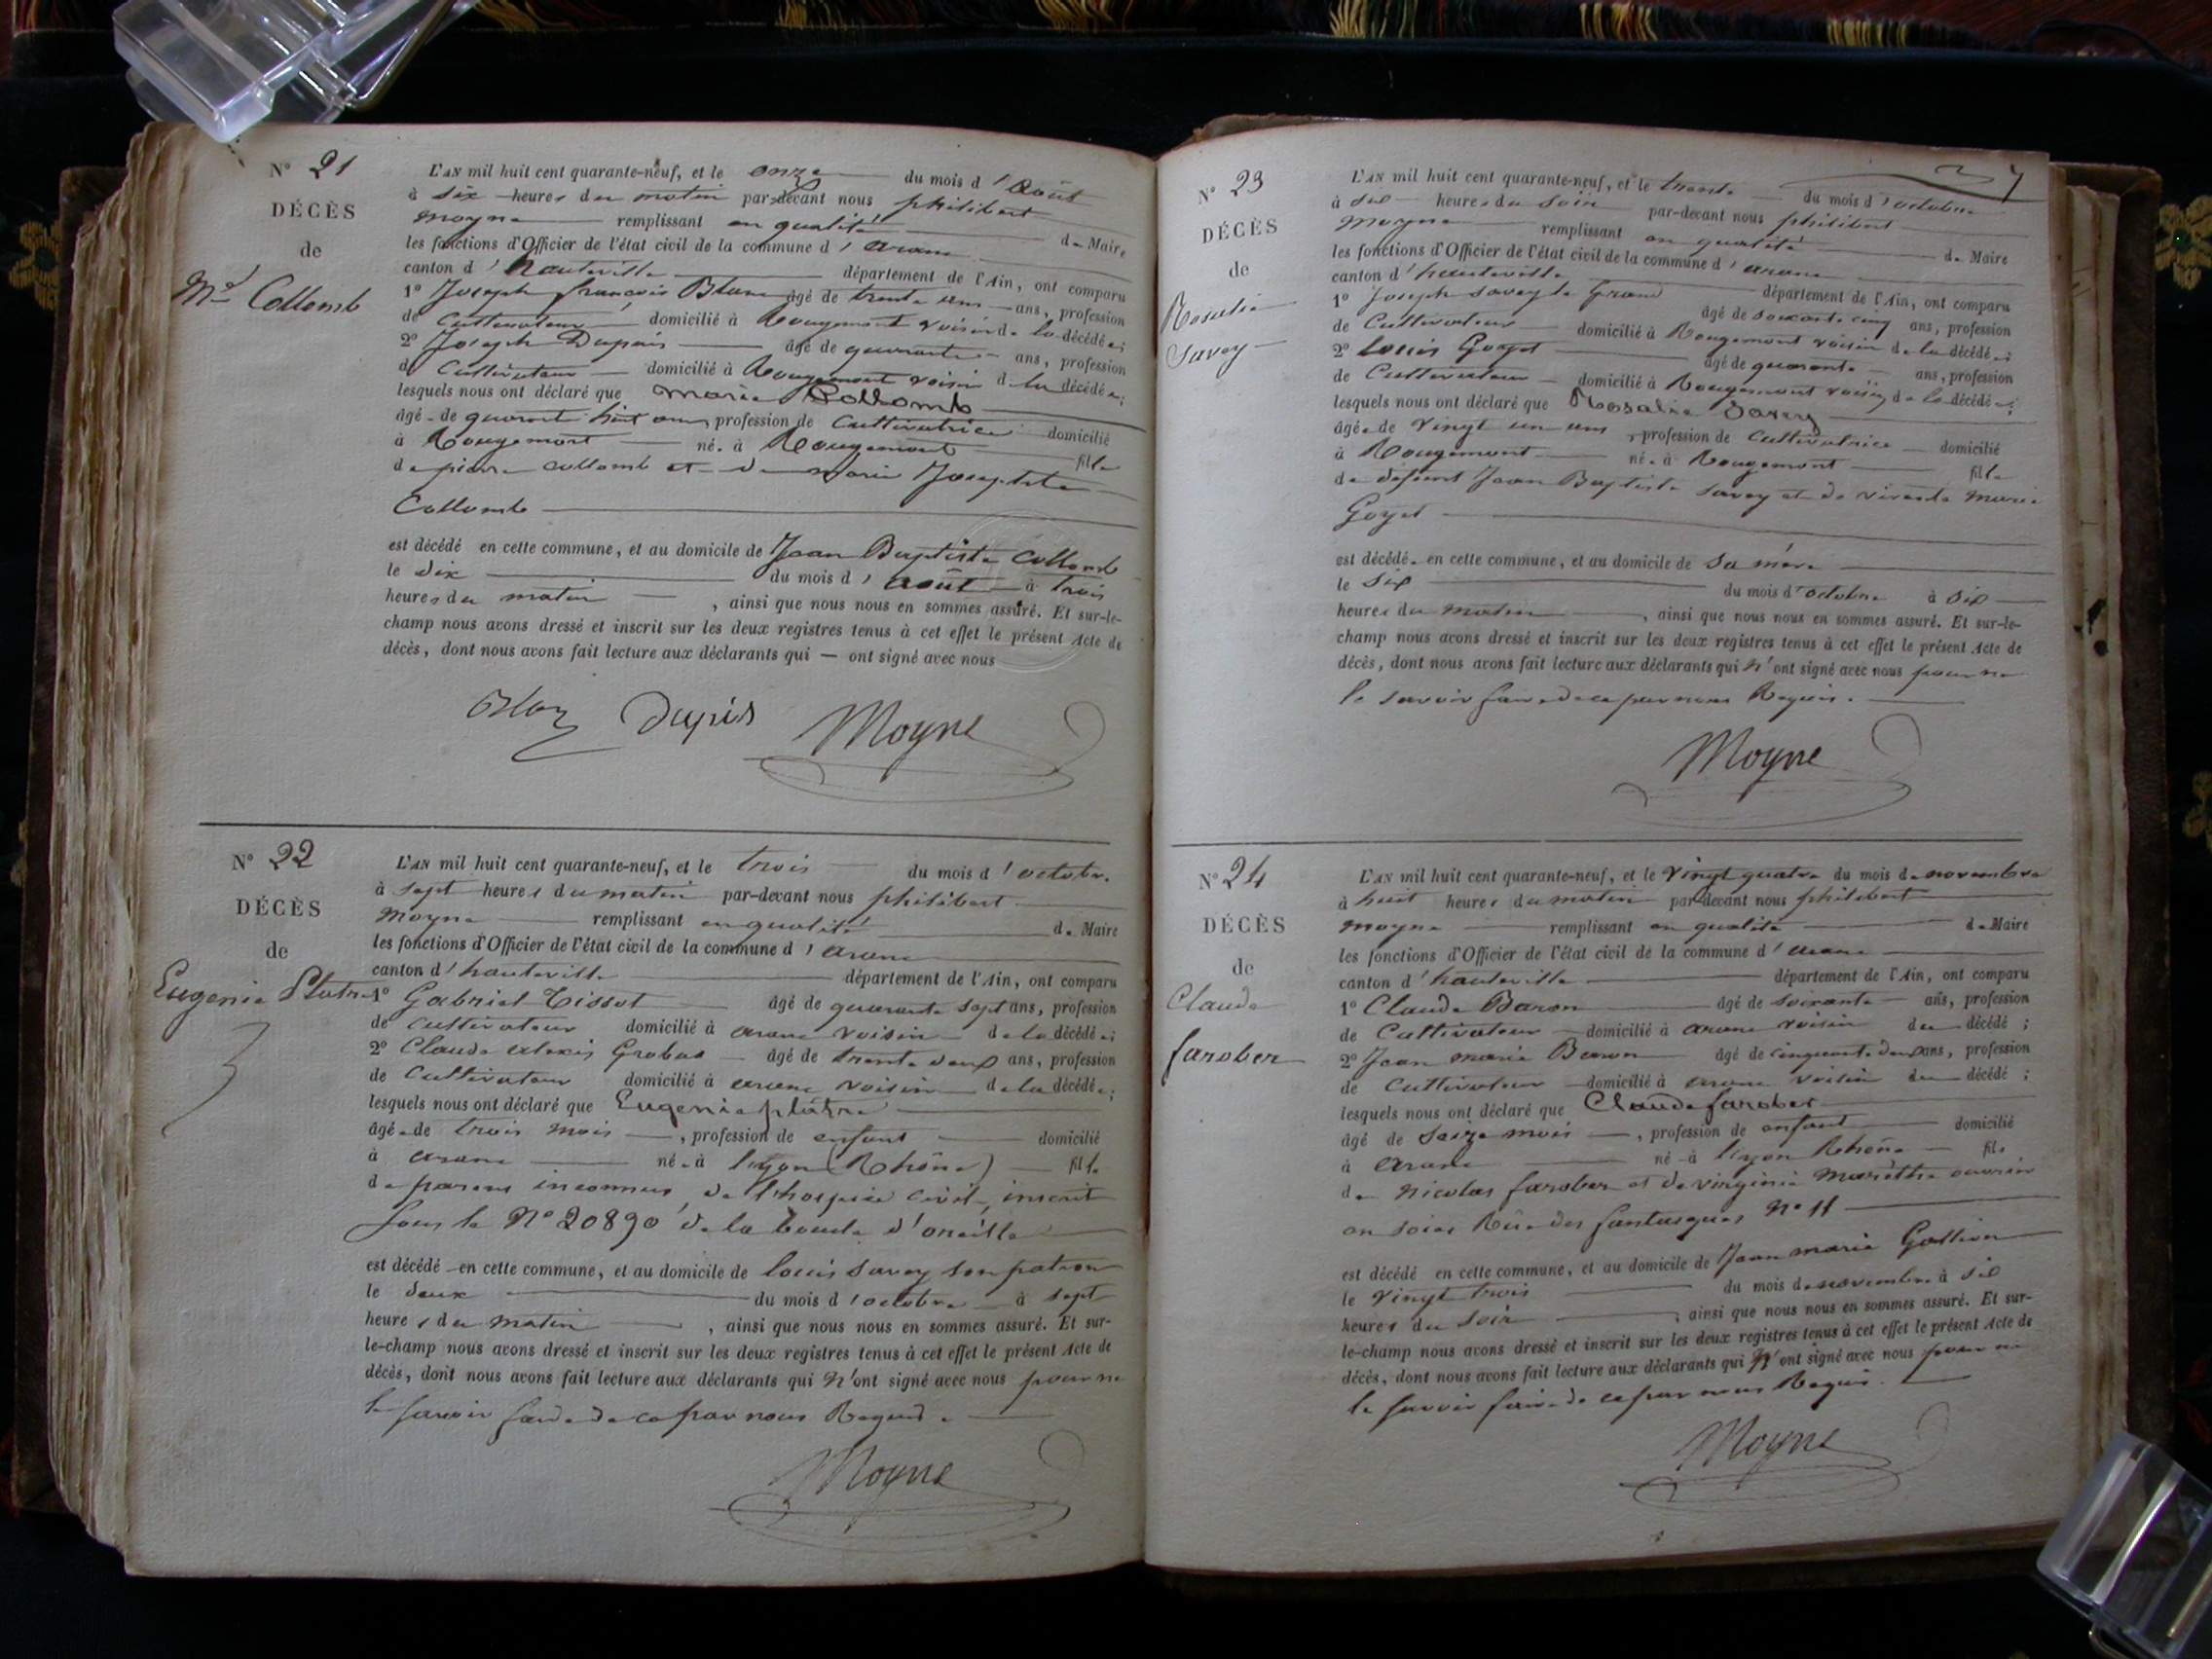 N° 21
DÉCÈS
de
Mie Collomb
L'AN mil huit cent quarante-neuf, et le onze du mois d'août
à six heures du matin par-devant nous philibert
moyne remplissant en qualité de Maire
les fonctions d'Officier de l'état civil de la commune d'arane
canton d'hauteville département de l'Ain, ont comparu
1° Joseph françois Blanc âgé de trente ans ans, profession
de Cultivateur domicilié à Rougemont voisin de la décédée;
2° Joseph Dupuis âgé de quarante ans, profession
de Cultivateur domicilié à Rougemont voisin de la décédée;
lesquels nous ont déclaré que marie Collomb
âgée de quarante huit ans, profession de Cultivatrice domicilié
à Rougemont née à Rougemont fille
de pierre collomb et de marie Josephte
Collomb
est décédé en cette commune, et au domicile de Jean Baptiste Collomb
le dix du mois d'août à trois
heures du matin, ainsi que nous nous en sommes assuré. Et sur-le-
champ nous avons dressé et inscrit sur les deux registres tenus à cet effet le présent Acte de
décès, dont nous avons fait lecture aux déclarants qui — ont signé avec nous
Dupuis Moyne
N° 22
DÉCÈS
de
Eugenie Platre
L'AN mil huit cent quarante-neuf, et le trois du mois d'octobre
à sept heures du matin par-devant nous philibert
moyne remplissant en qualité de Maire
les fonctions d'Officier de l'état civil de la commune d'arane
canton d'hauteville département de l'Ain, ont comparu
1° Gabriel Tissot âgé de quarante sept ans, profession
de cultivateur domicilié à arane voisin de la décédée;
2° Claude alexis Grobas âgé de trente deux ans, profession
de Cultivateur domicilié à arane voisin de la décédée;
lesquels nous ont déclaré que Eugenie platre
âgée de trois mois, profession de enfant domicilié
à arane née à lyon (Rhône) fille
de parens inconnus, de l'hospice civil, inscrit
sous le N° 20890 de la boucle d'oreille
est décédé en cette commune, et au domicile de louis Savey son patron
le deux du mois d'octobre à sept
heures du matin, ainsi que nous nous en sommes assuré. Et sur-
le-champ nous avons dressé et inscrit sur les deux registres tenus à cet effet le présent Acte de
décès, dont nous avons fait lecture aux déclarants qui n'ont signé avec nous pour ne
le savoir faire de ce par nous Requis.
Moyne
7
N° 23
DÉCÈS
de
Rosalie
Savey
L'AN mil huit cent quarante-neuf, et le trente du mois d'octobre
à six heures du soir par-devant nous philibert
Moyne remplissant en qualité de Maire
les fonctions d'Officier de l'état civil de la commune d'arane
canton d'hauteville département de l'Ain, ont comparu
1° Joseph Savey le Grand âgé de soixante cinq ans, profession
de Cultivateur domicilié à Rougemont voisin de la décédée;
2° Louis Goyet âgé de quarante ans, profession
de Cultivateur domicilié à Rougemont voisin de la décédée;
lesquels nous ont déclaré que Rosalie Savey
âgée de vingt un ans, profession de Cultivatrice domicilié
à Rougemont née à Rougemont fille
de défunt Jean Baptiste Savey et de vivante Marie
Goyet
est décédée en cette commune, et au domicile de sa mère
le six du mois d'octobre à six
heures du matin, ainsi que nous nous en sommes assuré. Et sur-le-
champ nous avons dressé et inscrit sur les deux registres tenus à cet effet le présent Acte de
décès, dont nous avons fait lecture aux déclarants qui n'ont signé avec nous pour ne
le savoir faire de ce par nous Requis.
Moyne
N° 24
DÉCÈS
de
Claude
farober
L'AN mil huit cent quarante-neuf, et le vingt quatre du mois de novembre
à huit heures du matin par-devant nous philibert
moyne remplissant en qualité de Maire
les fonctions d'Officier de l'état civil de la commune d'arane
canton d'hauteville département de l'Ain, ont comparu
1° Claude Baron âgé de soixante ans, profession
de Cultivateur domicilié à arane voisin du décédé;
2° Jean marie Baron âgé de cinquante deux ans, profession
de Cultivateur domicilié à arane voisin du décédé;
lesquels nous ont déclaré que Claude farober
âgé de seize mois, profession de enfant domicilié
à arane né à lyon Rhône fils
de Nicolas farober et de virginie ouvrier
en soies Rue des fantasques N° 11
est décédé en cette commune, et au domicile de Jean marie
le vingt trois du mois de novembre à six
heures du soir, ainsi que nous nous en sommes assuré. Et sur-
le-champ nous avons dressé et inscrit sur les deux registres tenus à cet effet le présent Acte de
décès, dont nous avons fait lecture aux déclarants qui n'ont signé avec nous pour ne
le savoir faire de ce par nous Requis.
Moyne